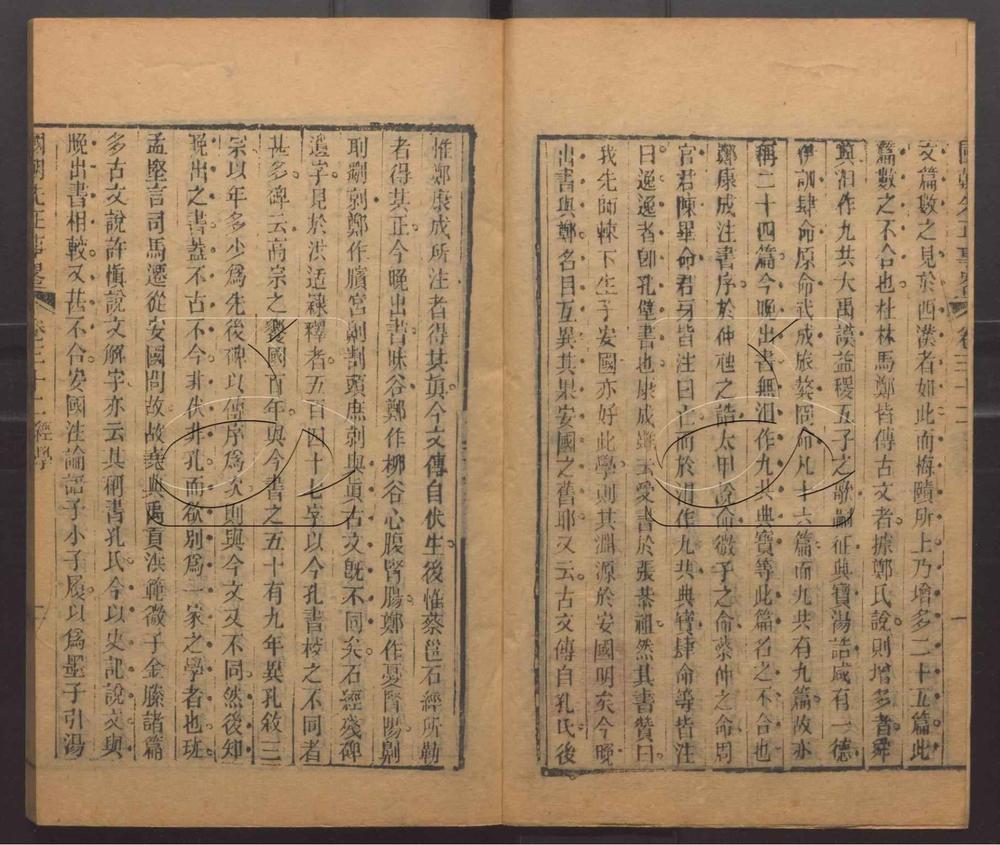 文篇數之見於西漢者如此而梅賾所上乃增多二十五篇此
篇數之不合也杜林馬鄭皆傳古文者據鄭氏說則增多者舜
典汩作九共大禹謨益稷五子之歌嗣征典寶湯誥咸有一德
伊訓肆命原命武成旅獒冏命凡十六篇而九共有九篇故亦
稱二十四篇今晚出書無汩作九共典寶等此篇名之不合也
鄭康成注書序於仲虺之誥太甲說命微子之命蔡仲之命周
官君陳畢命君牙皆注曰亡而於汩作九共典寶肆命等皆注
曰逸逸者卽孔壁書也康成雖云受書於張恭祖然其書贊曰
我先師棘下生子安國亦好此學則其淵源於安國明矣今晚
出書與鄭名目互異其果安國之舊耶又云古文傳自孔氏後
惟鄭康成所注者得其眞今文傳自伏生後惟蔡邕石經所勒
者得其正今晚出書昧谷鄭作柳谷心腹腎腸鄭作憂腎陽劓
刵劅剠鄭作臏宮劓割頭庶剠與眞古文旣不同矣石經殘碑
遺字見於洪适隸釋者五百四十七字以今孔書校之不同者
甚多碑云高宗之饗國百年與今書之五十有九年異孔敘三
宗以年多少爲先後碑以傳序爲次則與今文又不同然後知
晚出之書蓋不古不今非伏非孔而欲別爲一家之學者也班
孟堅言司馬遷從安國問故故堯典禹貢洪範微子金縢諸篇
多古文說許愼說文解字亦云其稱書孔氏今以史記說文與
晚出書相較又甚不合安國注論語予小子履以爲墨子引湯
國朝先正事畧 卷三十二 經學